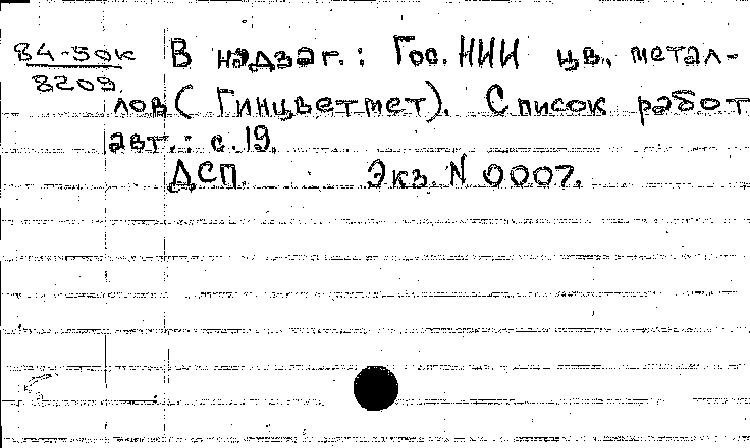 84-50к
8209
В надзаг.: Гос. НИИ цв. метал-
лов (Гинцветмет). Список работ
авт.: с. 19.
ДСП. Экз. N 0007.